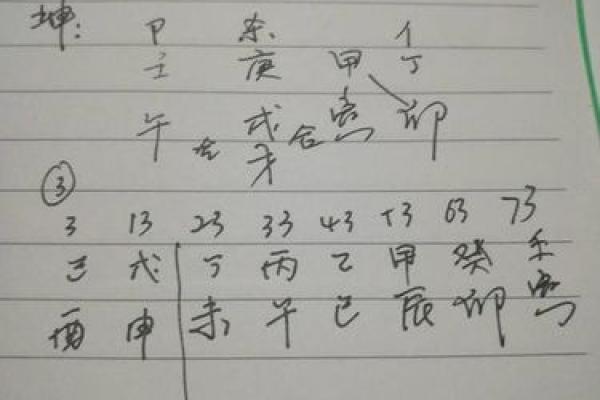 坤: P 杀 亻
壬 庚 甲 丁
午 合 戌 合 寅 卯
才
③
3 13 23 33 43 53 63 73
己 戊 丁 丙 乙 甲 癸 壬
酉 申 未 午 巳 辰 卯 寅